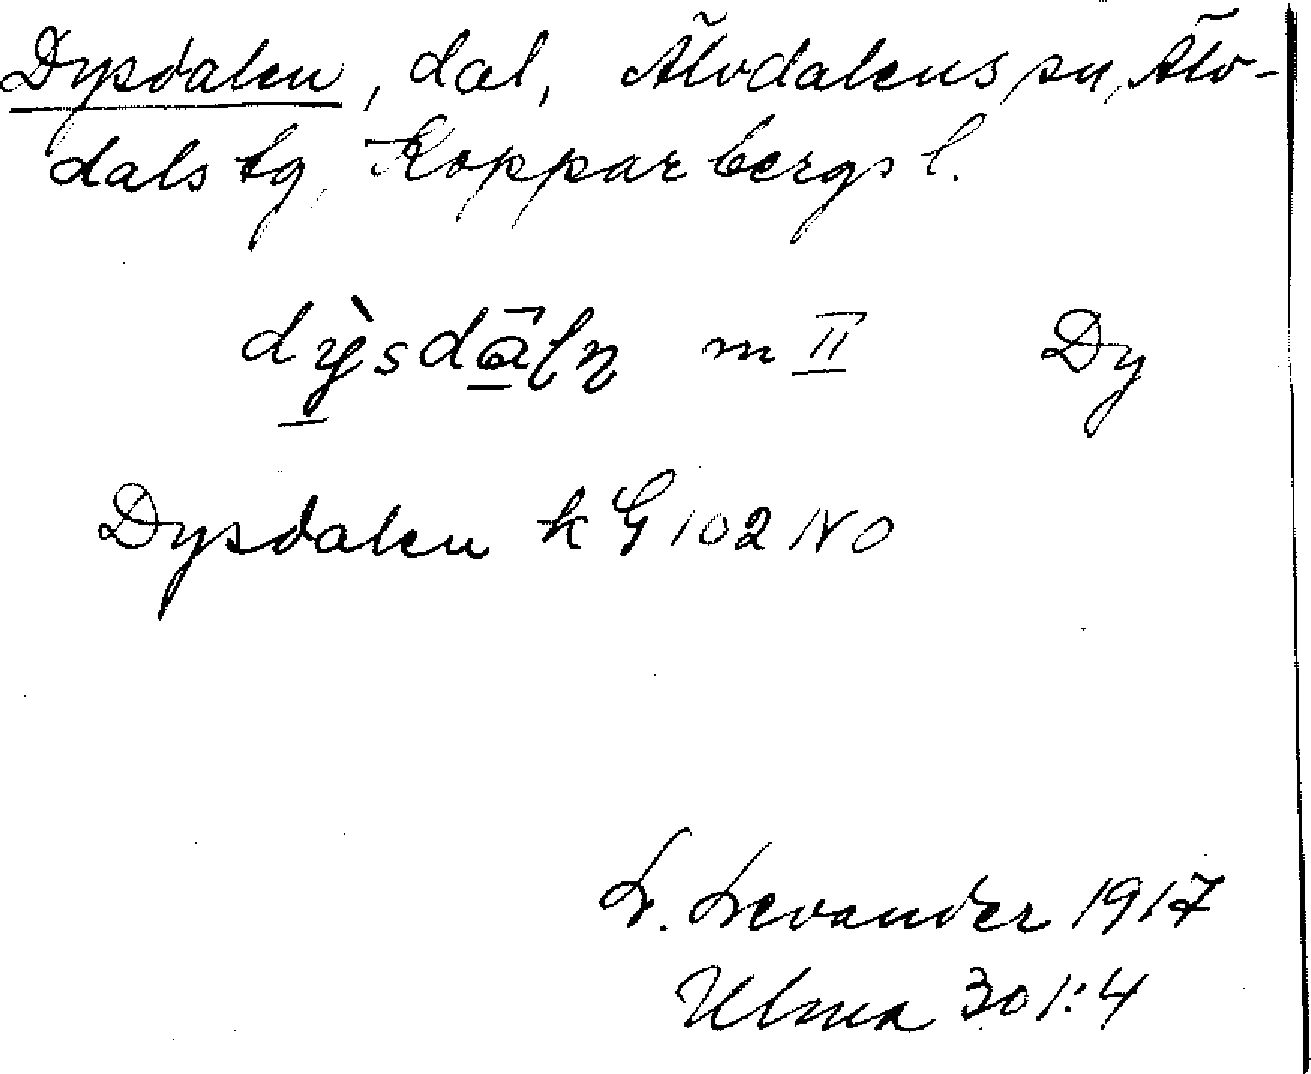 Dysdalen, dal, Älvdalens sn, Älv-
dals tg, Kopparbergs l.
dỳ̱sdā̱ln m II Dy
Dysdalen k G 102 NO
L. Levander 1917
Ulma 301:4